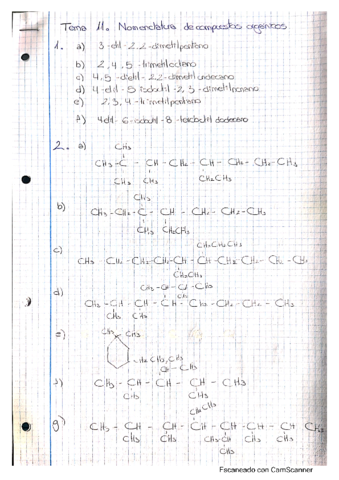 Tema 11. Nomenclatura de compuestos orgánicos.
1. a) 3-etil-2,2-dimetilpentano
b) 2,4,5-trimetiloctano
c) 4,5-dietil-2,2-dimetil undecano
d) 4-etil-5 isobutil-2,3-dimetilnonano
e) 2,3,4-trimetilpentano
f) 4etil-6-isobutil-8-
2. a) CH₃
CH₃-C - CH - CH₂ - CH - CH₂ - CH₂ - CH₃
CH₃ CH₃ CH₂CH₃
b) CH₃
CH₃-CH₂-C - CH - CH₂ - CH₂ - CH₃
CH₃ CH₂CH₃
c) CH₂CH₂CH₃
CH₃ - CH₂ - CH₂-CH₂-CH - CH - CH₂ - CH₂ - CH₂ - CH₃
CH₂CH₃
d) CH₃-CH-CH-CH₃
CH₃
CH₃-CH - CH - CH - CH₂ - CH₂ - CH₂ - CH₃
CH₃ CH₃
e) CH₃ CH₃
f) CH₃ - CH - CH - CH - CH₃
CH₃ CH₃
g) CH₂CH₃
CH₃ - CH - CH - CH - CH - CH - CH CH₃
CH₃ CH₃ CH₃-CH CH₃ CH₃
CH₃
Escaneado con CamScanner